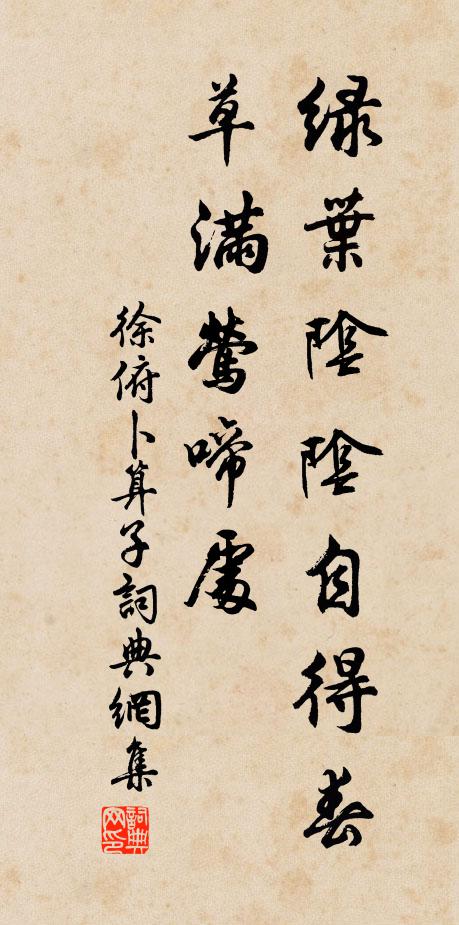 綠葉陰陰自得春
草滿鶯啼處
徐俯卜算子詞典網集
詞典网印